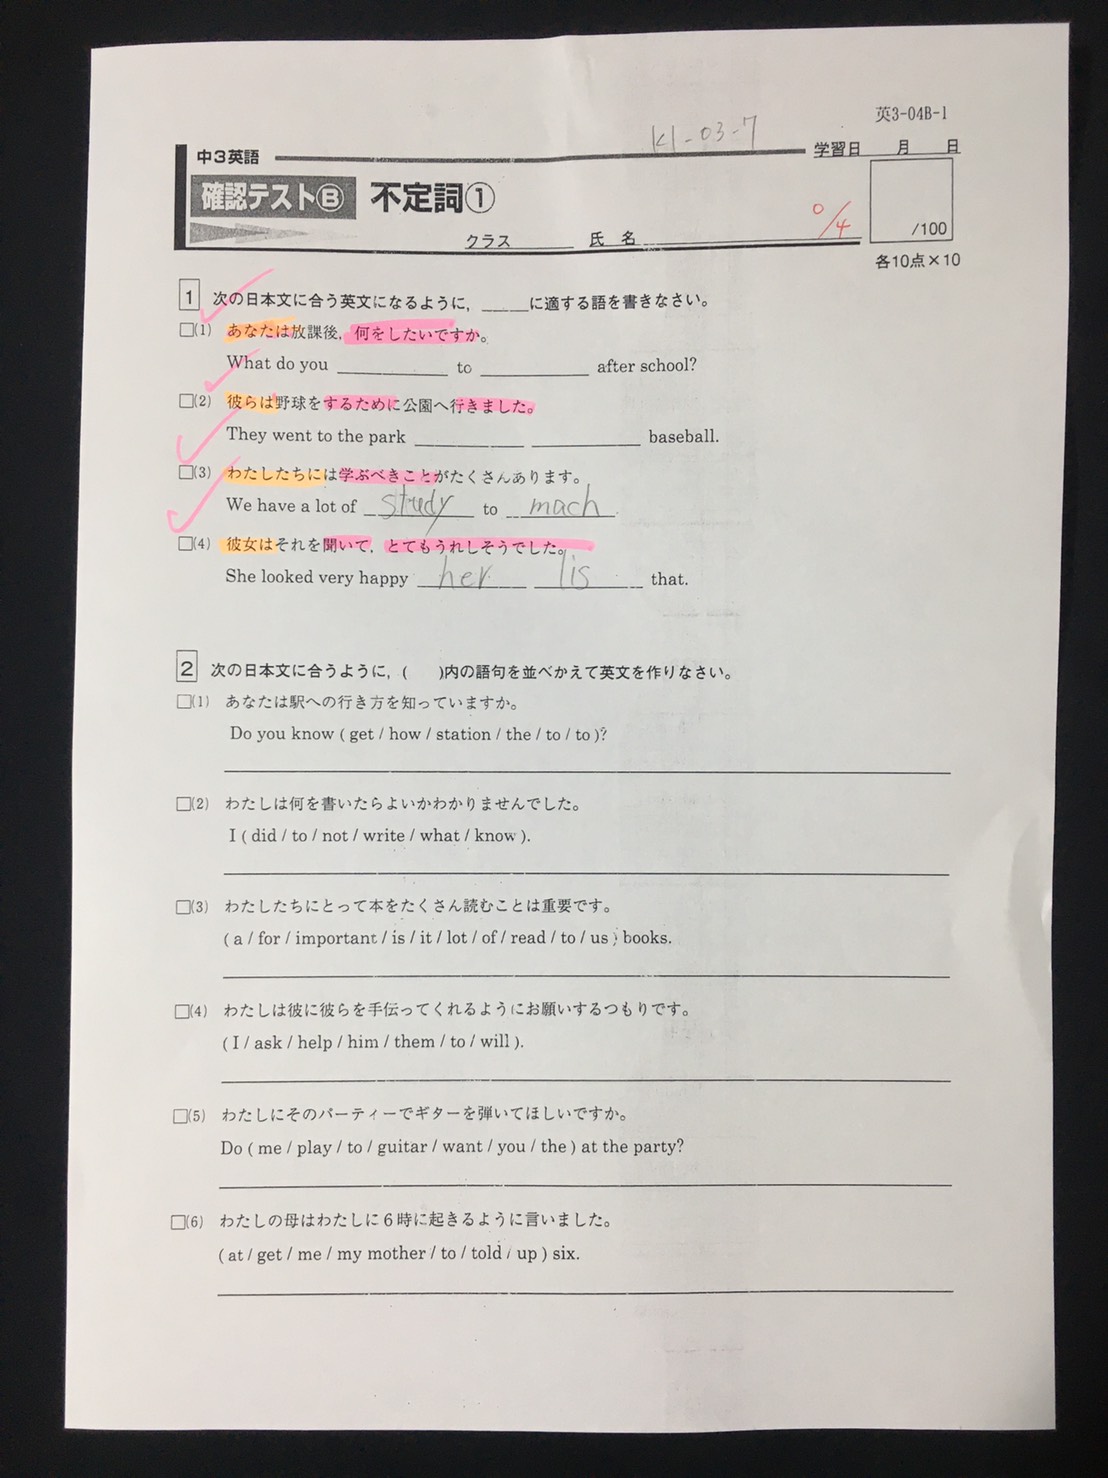 英3-04B-1
K1-03-7
中3英語
学習日 月 日
確認テストⒷ 不定詞①
0/4
/100
クラス 氏名
各10点×10
1 次の日本文に合う英文になるように，____に適する語を書きなさい。
□(1) あなたは放課後，何をしたいですか。
What do you ________ to ________ after school?
□(2) 彼らは野球をするために公園へ行きました。
They went to the park ________ ________ baseball.
□(3) わたしたちには学ぶべきことがたくさんあります。
We have a lot of study to mach.
□(4) 彼女はそれを聞いて，とてもうれしそうでした。
She looked very happy her lis that.
2 次の日本文に合うように，( )内の語句を並べかえて英文を作りなさい。
□(1) あなたは駅への行き方を知っていますか。
Do you know ( get / how / station / the / to / to )?
□(2) わたしは何を書いたらよいかわかりませんでした。
I ( did / to / not / write / what / know ).
□(3) わたしたちにとって本をたくさん読むことは重要です。
( a / for / important / is / it / lot / of / read / to / us ) books.
□(4) わたしは彼に彼らを手伝ってくれるようにお願いするつもりです。
( I / ask / help / him / them / to / will ).
□(5) わたしにそのパーティーでギターを弾いてほしいですか。
Do ( me / play / to / guitar / want / you / the ) at the party?
□(6) わたしの母はわたしに6時に起きるように言いました。
( at / get / me / my mother / to / told / up ) six.